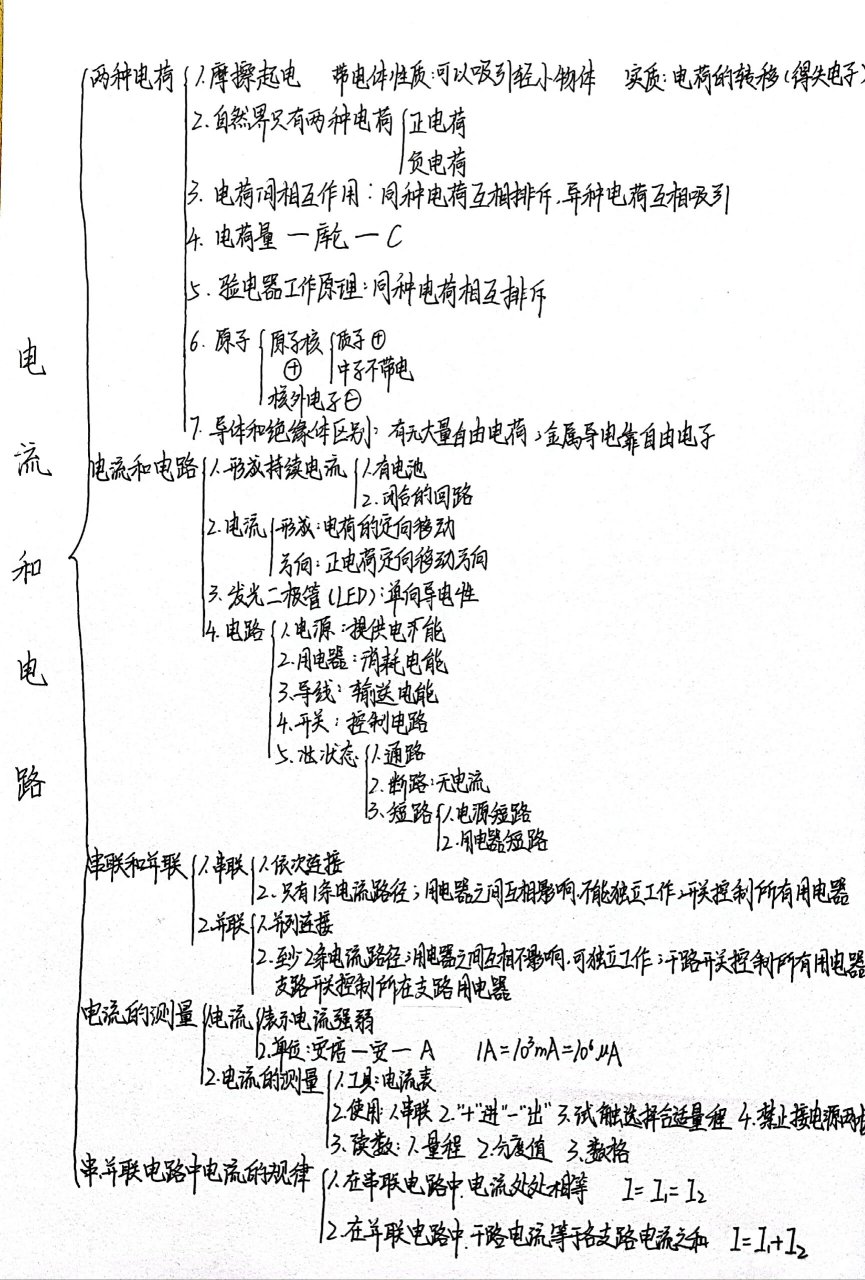 电流和电路
两种电荷 1.摩擦起电 带电体性质:可以吸引轻小物体 实质:电荷的转移(得失电子)
2.自然界只有两种电荷 正电荷
负电荷
3.电荷间相互作用:同种电荷互相排斥.异种电荷互相吸引
4.电荷量—库仑—C
5.验电器工作原理:同种电荷相互排斥
6.原子 原子核 质子⊕
⊕ 中子不带电
核外电子⊖
7.导体和绝缘体区别:有无大量自由电荷;金属导电靠自由电子
电流和电路 1.形成持续电流 1.有电池
2.闭合的回路
2.电流 形成:电荷的定向移动
方向:正电荷定向移动方向
3.发光二极管(LED):单向导电性
4.电路 1.电源:提供电能
2.用电器:消耗电能
3.导线:输送电能
4.开关:控制电路
5.状态 1.通路
2.断路:无电流
3.短路 1.电源短路
2.用电器短路
串联和并联 1.串联 1.依次连接
2.只有1条电流路径;用电器之间互相影响.不能独立工作;开关控制所有用电器
2.并联 1.并列连接
2.至少2条电流路径;用电器之间互相不影响.可独立工作;干路开关控制所有用电器
支路开关控制所在支路用电器
电流的测量 1.电流 1.表示电流强弱
2.单位:安培—安—A 1A=10³mA=10⁶μA
2.电流的测量 1.工具:电流表
2.使用:1.串联 2."+"进"-"出" 3.试触选择合适量程 4.禁止接电源两
3.读数:1.量程 2.分度值 3.数格
串.并联电路中电流的规律 1.在串联电路中.电流处处相等 I=I₁=I₂
2.在并联电路中.干路电流等于各支路电流之和 I=I₁+I₂